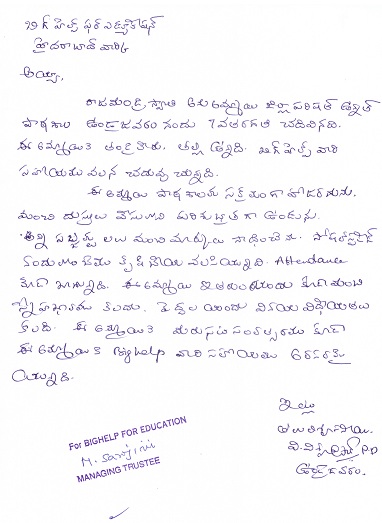 బిగ్ హెల్ప్ ఫర్ ఎడ్యుకేషన్
హైదరాబాద్ వారికి
అయ్యా,
రాజమండ్రి స్వాతి అను అమ్మాయి జిల్లా పరిషత్ ఉన్నత
పాఠశాల ఉండ్రాజవరం నందు 7వ తరగతి చదివినది.
ఈ అమ్మాయికి తండ్రి లేరు. తల్లి ఉన్నది. బిగ్ హెల్ప్ వారి
సహాయము వలన చదువు చున్నది.
ఈ అమ్మాయి పాఠశాలకు సక్రమంగా హాజరగును.
మంచి దుస్తులు వేసుకొని పరిశుభ్రంగా ఉండును.
అన్ని సబ్జెక్టు లలో మంచి మార్కులు సాధించెను.
కృషి చేయ వలసియున్నది. Attendance
కూడా బాగున్నది. ఈ అమ్మాయి ఇతరులయందు కూడా మంచి
స్నేహభావము కలదు. పెద్దల యందు వినయ విధేయతలు
కలది. ఈ అమ్మాయికి మరుసటి సంవత్సరము కూడా
ఈ అమ్మాయికి Bighelp వారి సహాయము అవసరమై
యున్నది.
ఇట్లు
తమ విశ్వసనీయ,
P.D
ఉండ్రాజవరం.
For BIGHELP FOR EDUCATION
M. Sarojini
MANAGING TRUSTEE